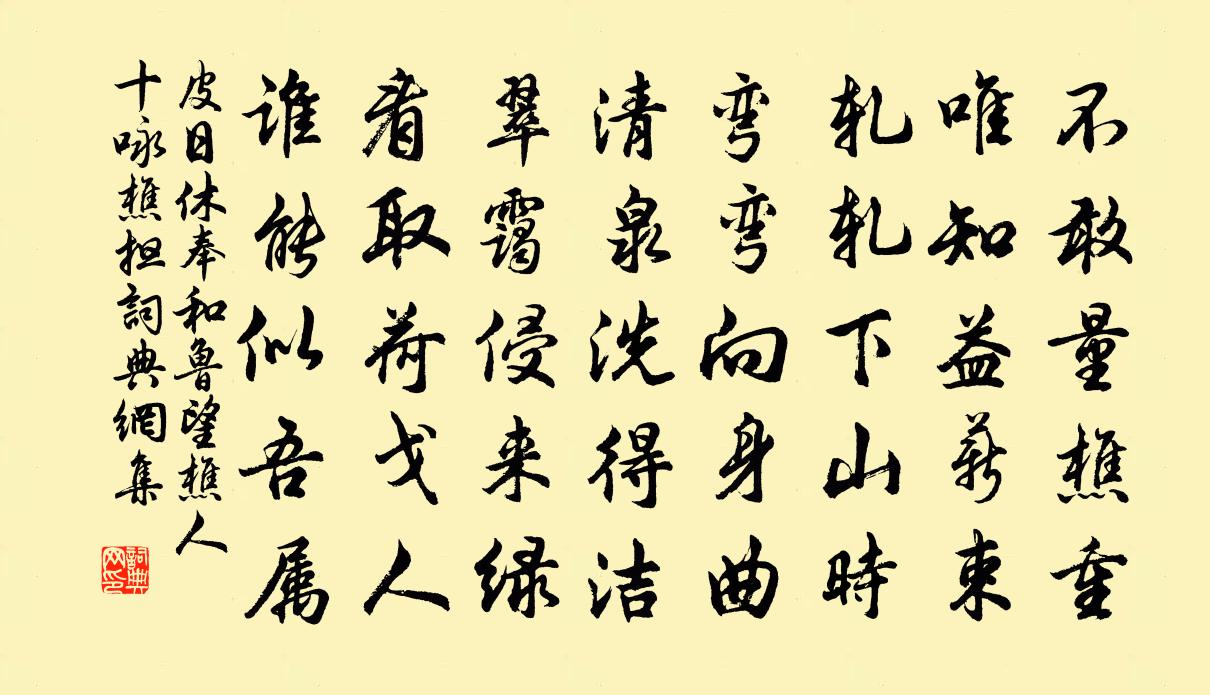 不敢量樵重
唯知益薪束
軋軋下山時
弯弯向身曲
清泉洗得洁
翠靄侵来绿
看取荷戈人
谁能似吾属
皮日休奉和鲁望樵人
十咏樵担詞典網集
詞典网印